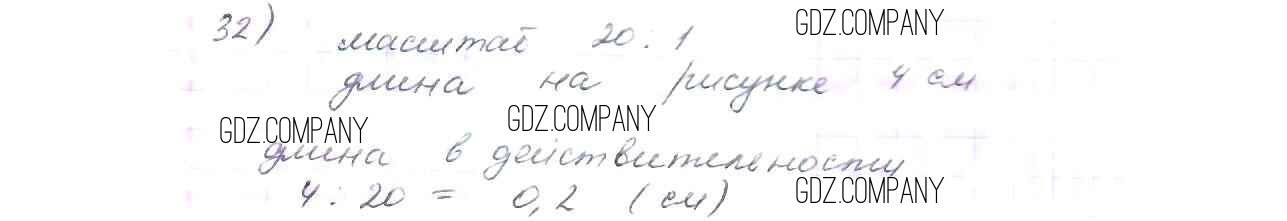 32) масштаб 20 : 1 GDZ.COMPANY
длина на рисунке 4 см
GDZ.COMPANY GDZ.COMPANY
длина в действительности
4 : 20 = 0,2 (см) GDZ.COMPANY